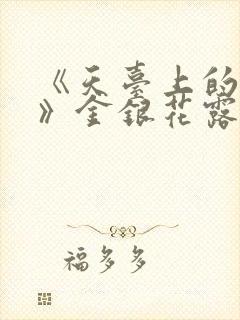 《天臺上的
》金銀花露
福多多